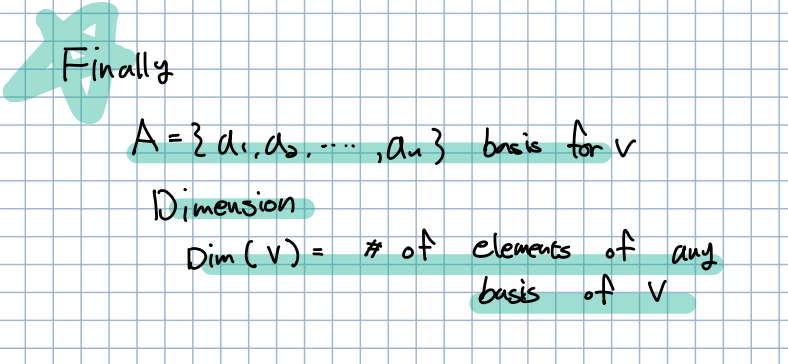 Finally
A = { a₁, a₂, ···· , aₙ } basis for V
Dimension
Dim ( V ) = # of elements of any
basis of V